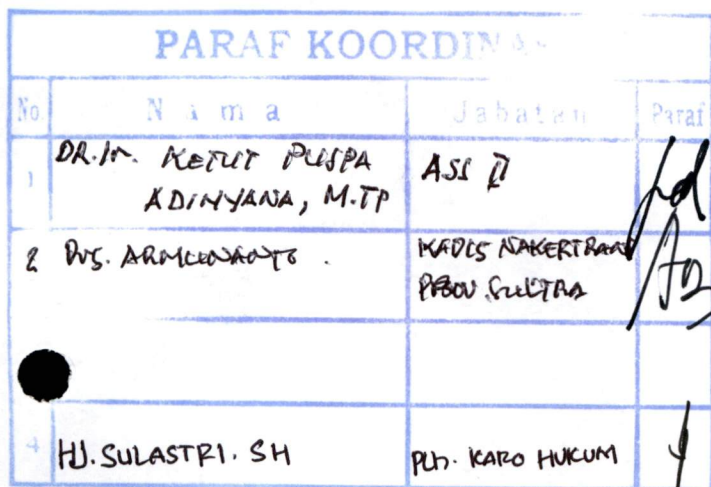 PARAF KOORDINAS
No. Nama Jabatan Paraf
1 DR. Ir. KETUT PUSPA ASS II
ADINYANA, M.TP
2 Drs. ARMUNANTO. KADIS NAKERTRANS
PROV. SULTRA
4 HJ. SULASTRI. SH Plh. KARO HUKUM